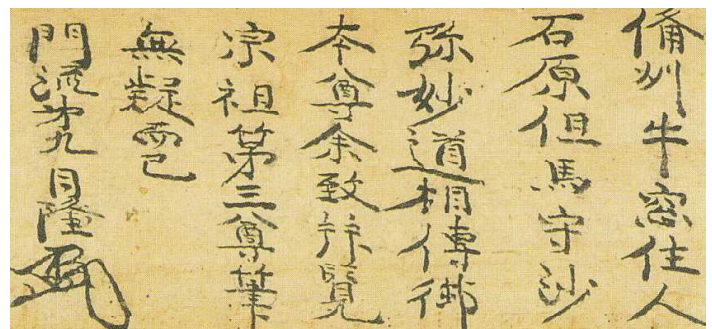 備州牛窓住人
石原但馬守沙
弥妙道相傳御
本尊余致拝覧
宗祖第三尊筆
無疑而已
門流第九日隆